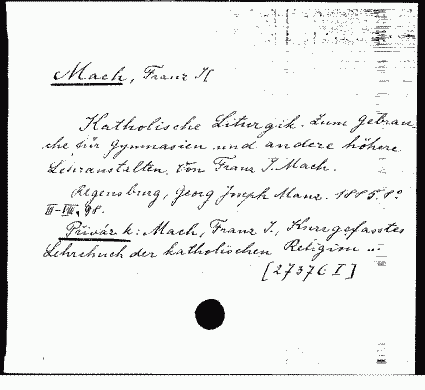 Mach, Franz J[
Katholische Liturgik. Zum Gebrau-
che für Gymnasien und andere höhere
Lehranstalten. Von Franz J. Mach.
Regensburg, Georg Joseph Manz. 1885. 8°
III-VIII, 98.
Přívaz k: Mach, Franz J., Kurzgefasstes
Lehrbuch der katholischen Religion ...
[27376 I]